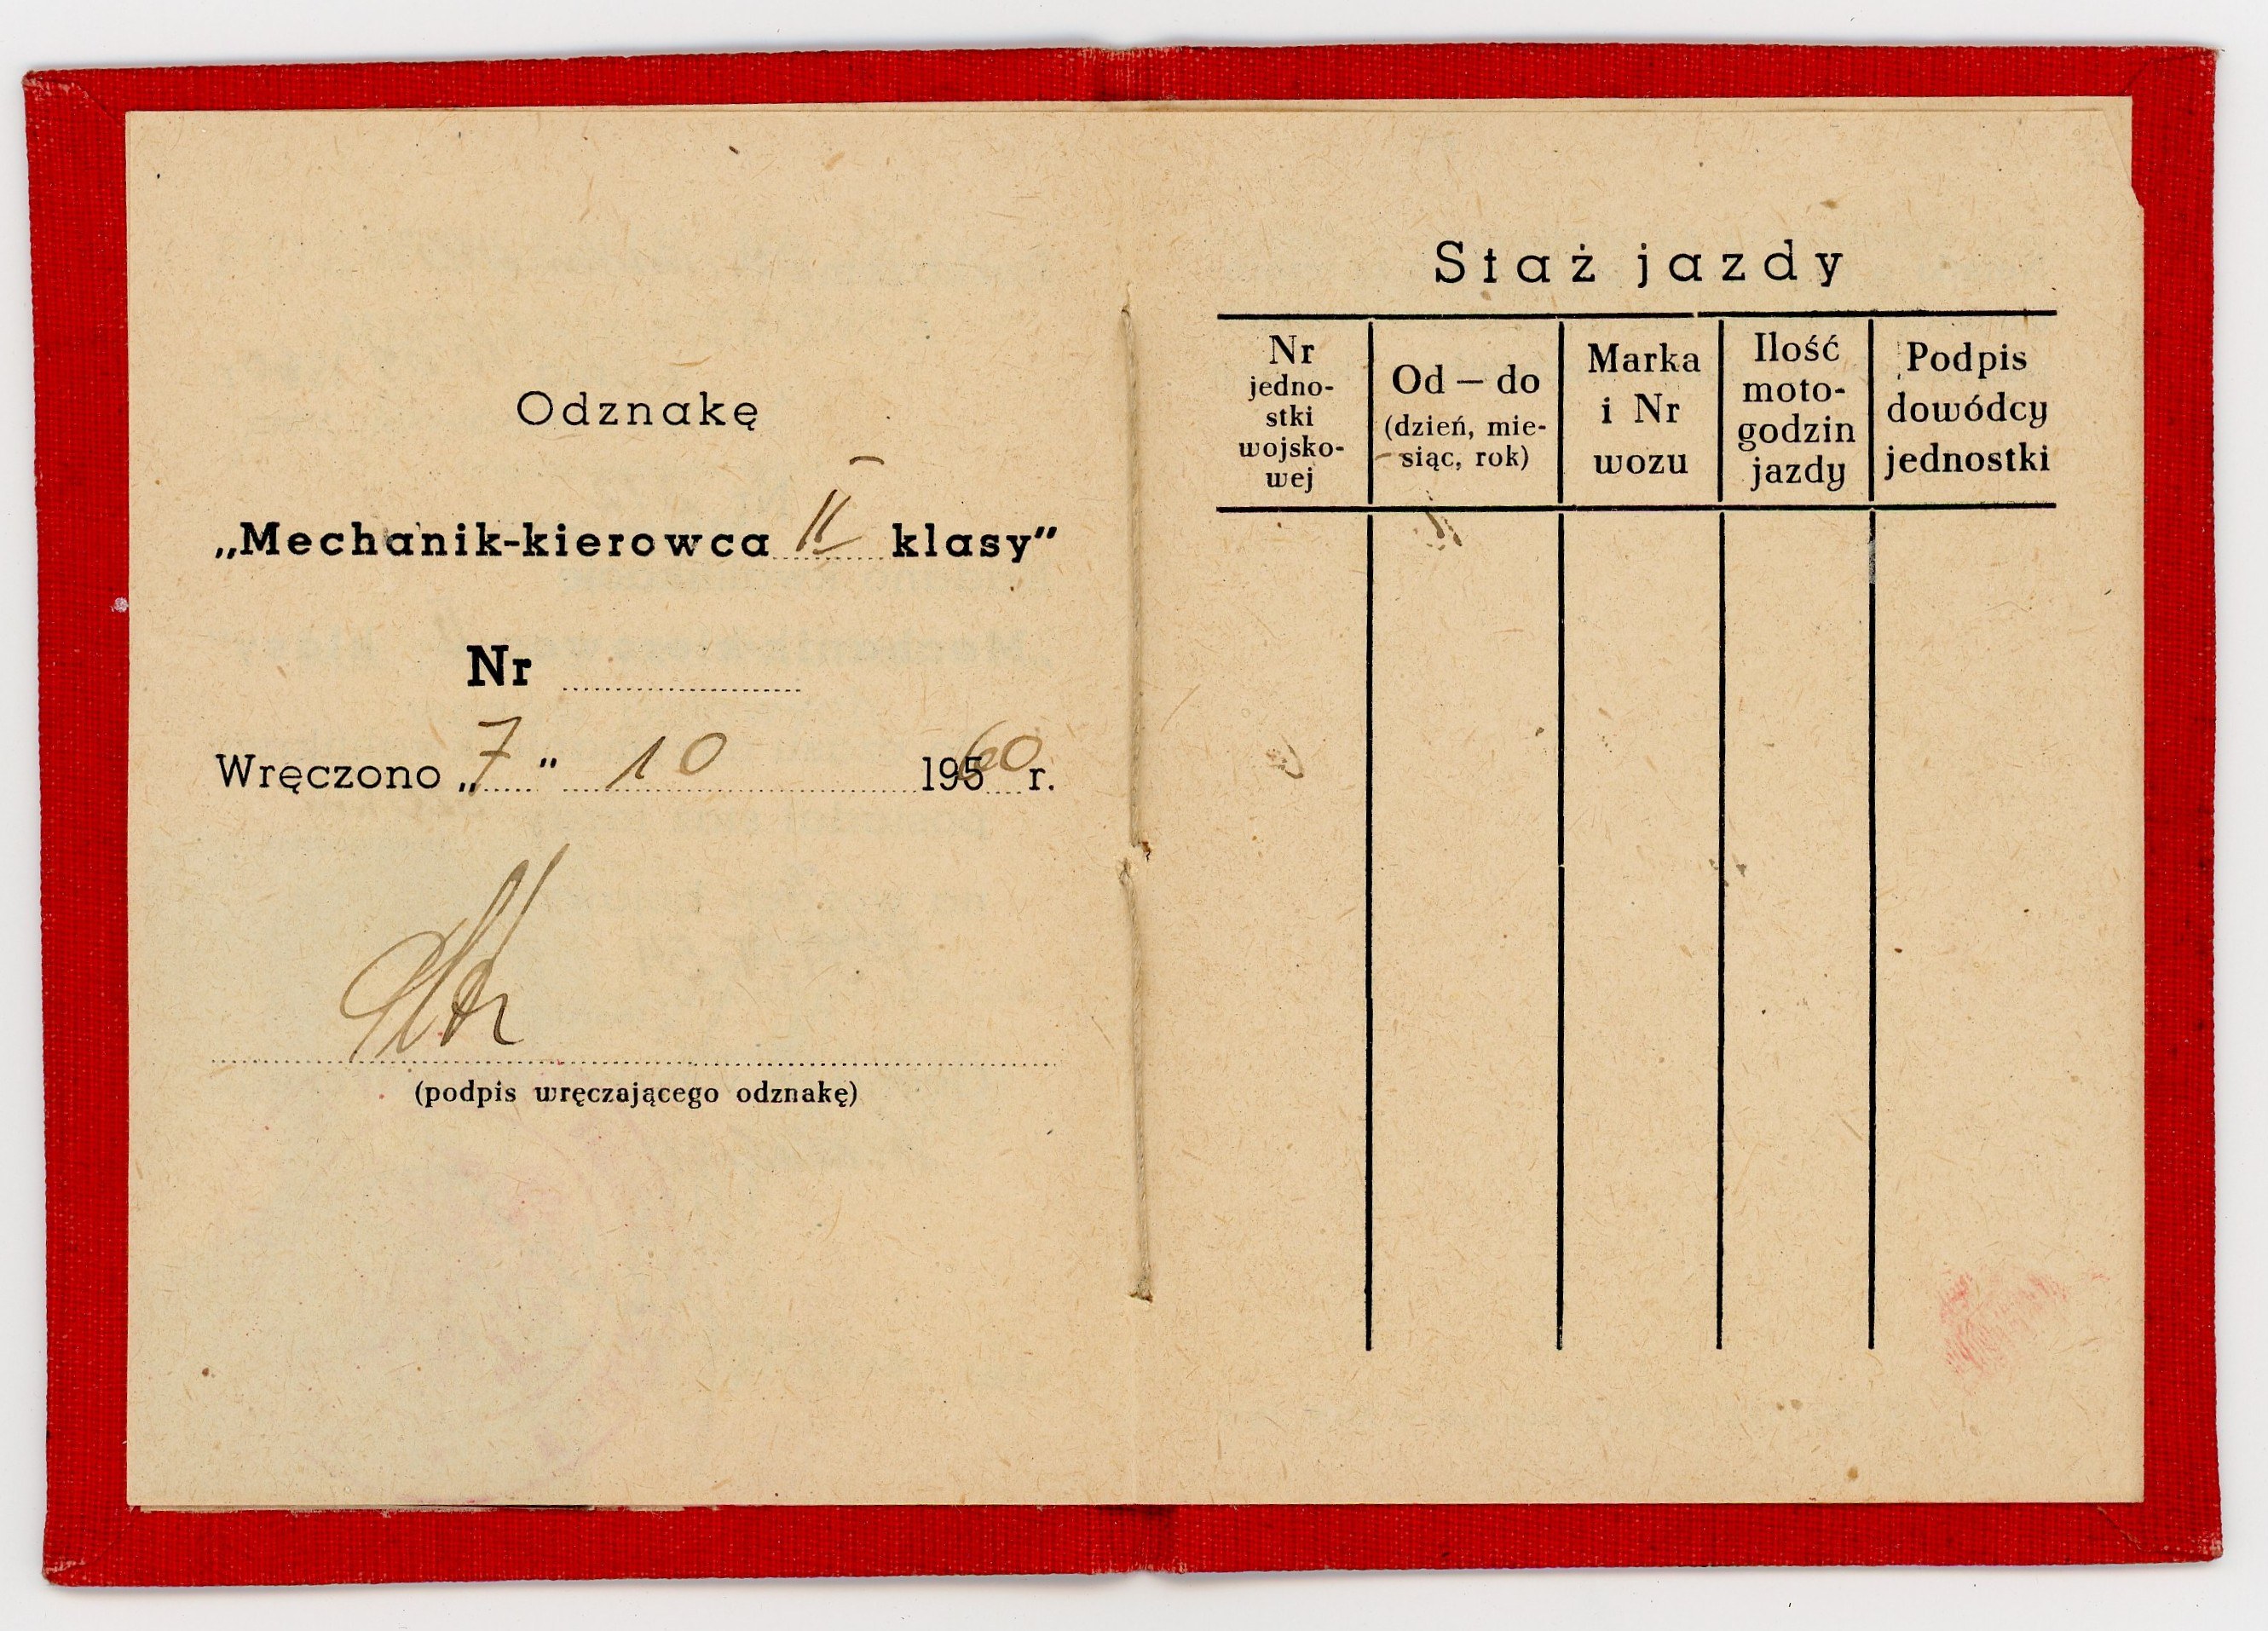 Odznakę
„Mechanik-kierowca II klasy”
Nr
Wręczono „7” 10 1960 r.
(podpis wręczającego odznakę)
Staż jazdy
Nr
jedno-
stki
wojsko-
wej
Od — do
(dzień, mie-
siąc, rok)
Marka
i Nr
wozu
Ilość
moto-
godzin
jazdy
Podpis
dowódcy
jednostki